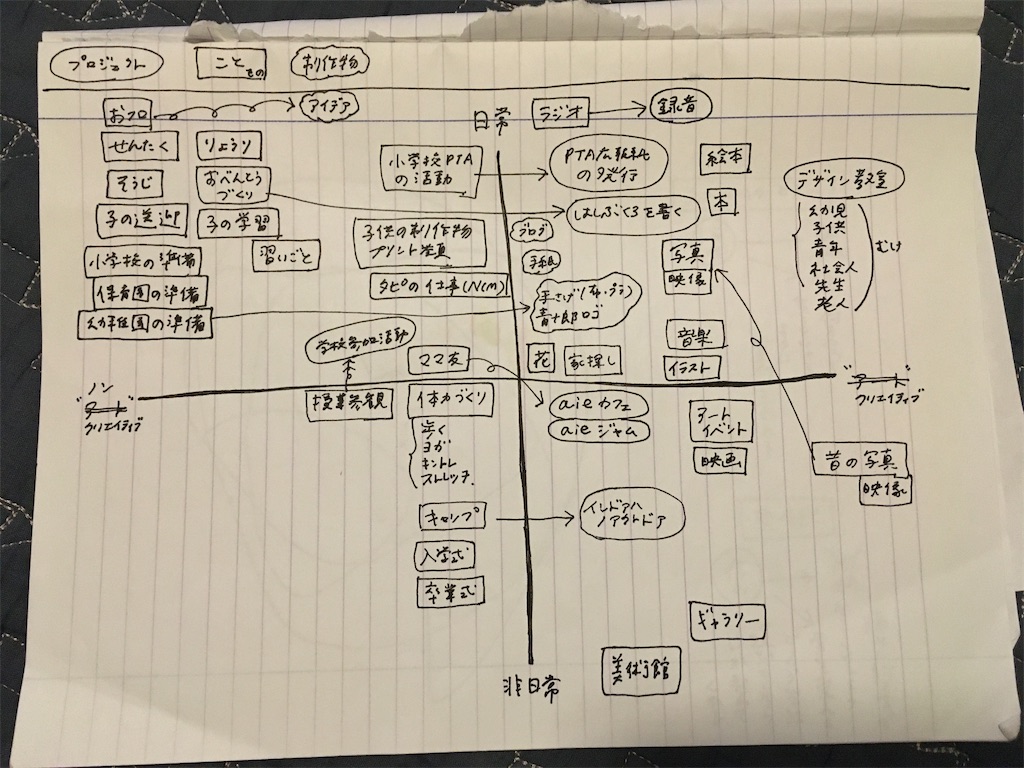 プロジェクト
こと もの
制作物
おフロ
アイデア
日常
ラジオ
録音
せんたく
りょうり
小学校PTA
の活動
PTA広報紙
の発行
絵本
デザイン教室
そうじ
おべんとう
づくり
はしぶくろを書く
本
幼児
子供
青年
社会人
先生
老人
むけ
子の送迎
子の学習
子供の制作物
プリント整頁
ブログ
小学校の準備
習いごと
手紙
写真
映像
保育園の準備
タビの仕事(NCM)
手さげ(布・プラ)
青十郎ロゴ
幼稚園の準備
学校参加活動
ママ友
花
家探し
音楽
イラスト
ノン
"アート"
クリエイティブ
"アート"
クリエイティブ
授業参観
体力づくり
歩く
ヨガ
キントレ
ストレッチ
aieカフェ
aieジャム
アート
イベント
映画
昔の写真
映像
キャンプ
インドアハ
ノアウトドア
入学式
卒業式
ギャラリー
美術館
非日常